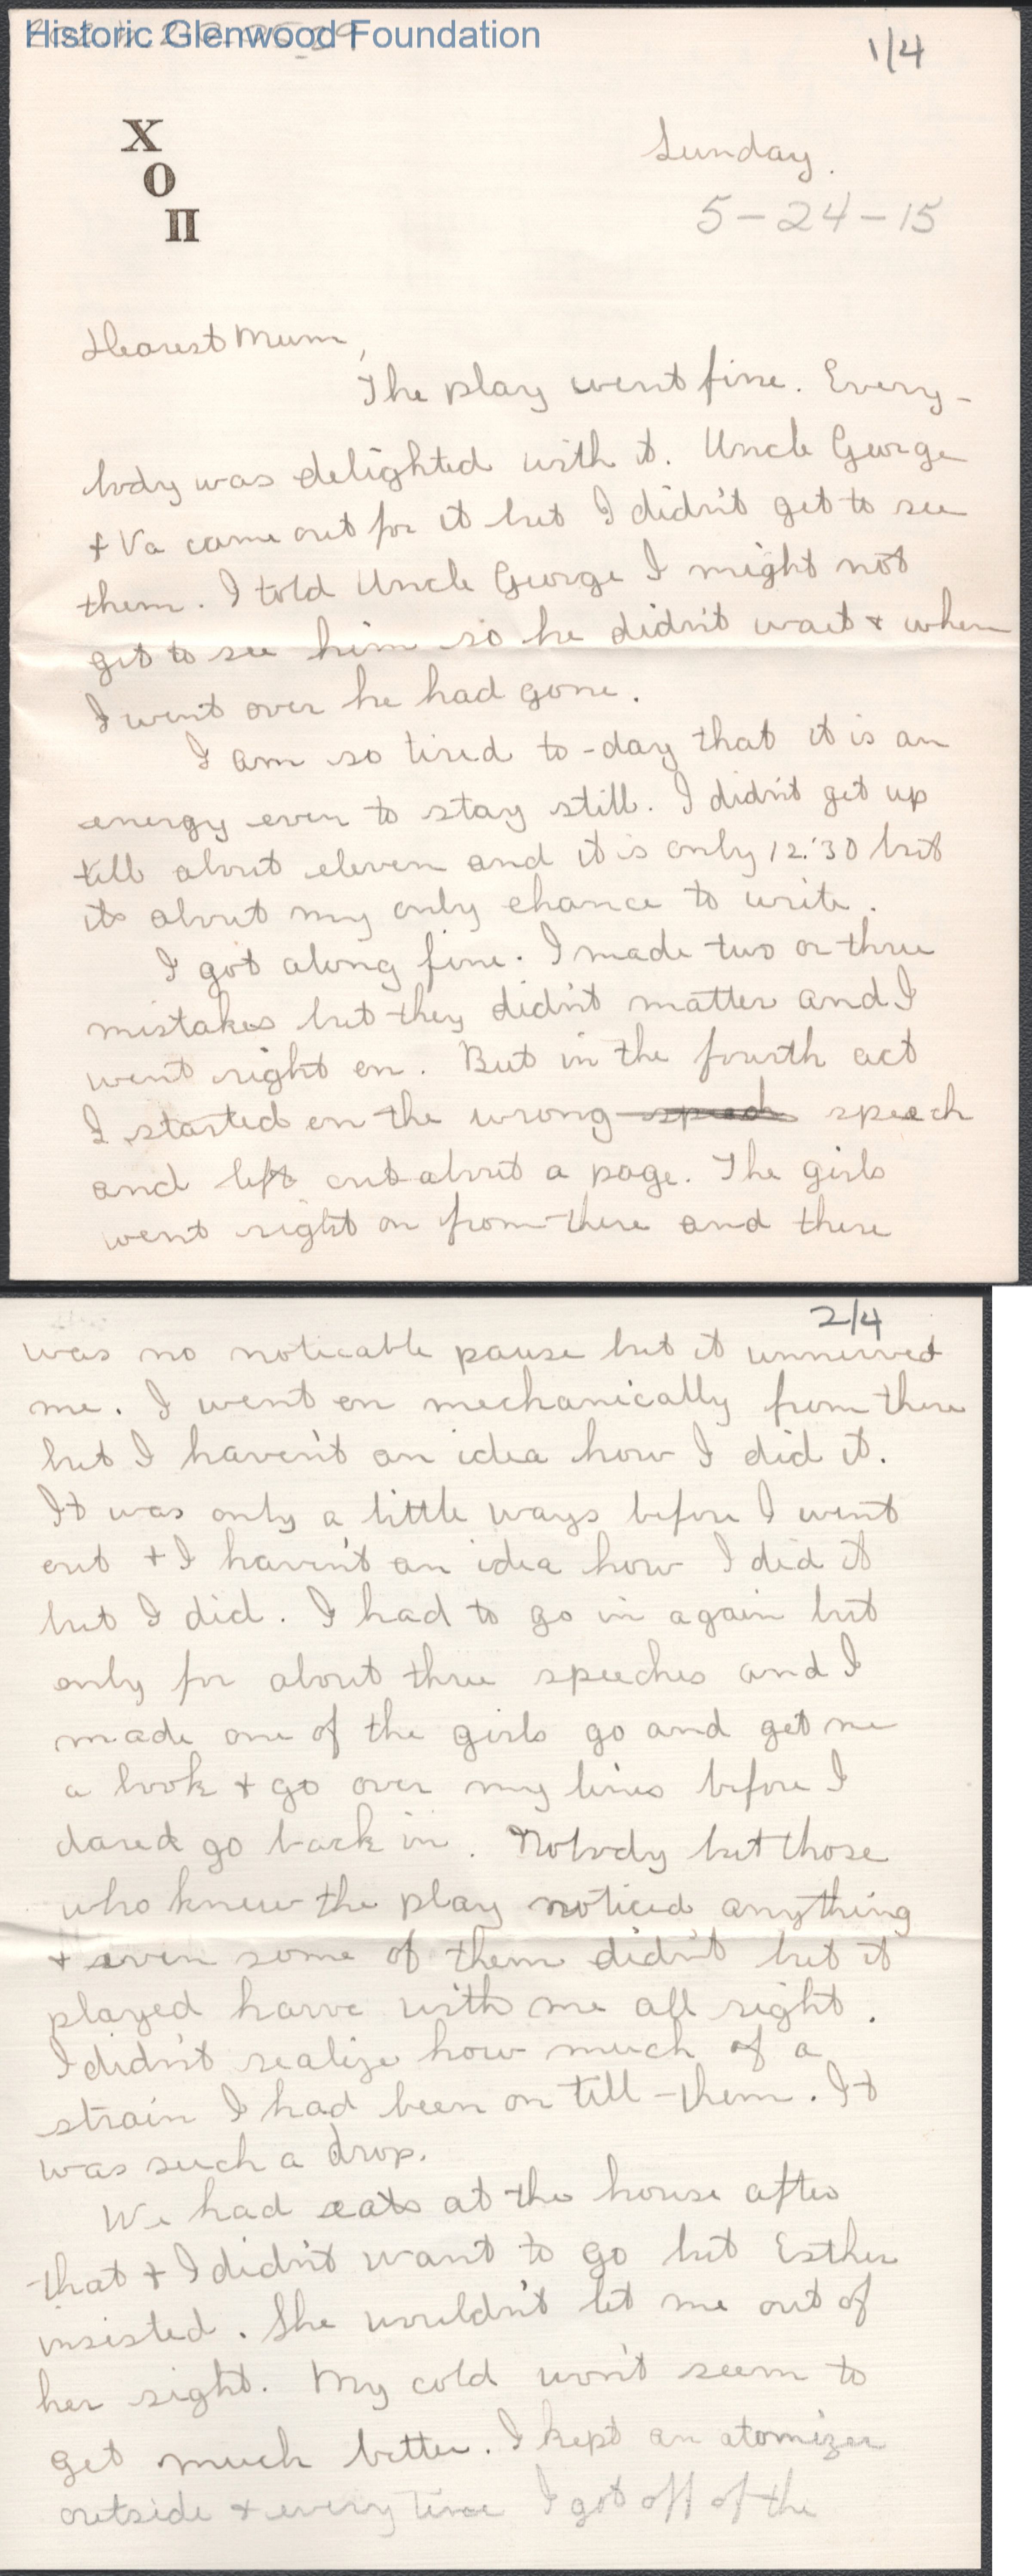 Historic Glenwood Foundation
1/4
X
O
Π
Sunday.
5-24-15
Dearest Mum,
The play went fine. Every-
body was delighted with it. Uncle George
+ Va came out for it but I didn't get to see
them. I told Uncle George I might not
get to see him so he didn't wait + when
I went over he had gone.
I am so tired to-day that it is an
energy even to stay still. I didn't get up
till about eleven and it is only 12:30 but
its about my only chance to write.
I got along fine. I made two or three
mistakes but they didn't matter and I
went right on. But in the fourth act
I started on the wrong speech
and left out about a page. The girls
went right on from there and there
2/4
was no noticable pause but it unnerved
me. I went on mechanically from there
but I haven't an idea how I did it.
It was only a little ways before I went
out + I haven't an idea how I did it
but I did. I had to go in again but
only for about three speeches and I
made one of the girls go and get me
a book + go over my lines before I
dared go back in. Nobody but those
who knew the play noticed anything
+ even some of them didn't but it
played havve with me all right.
I didn't realize how much of a
strain I had been on till then. It
was such a drop.
We had eats at the house after
that + I didn't want to go but Esther
insisted. She wouldn't let me out of
her sight. My cold won't seem to
get much better. I kept an atomizer
outside + every time I got off of the